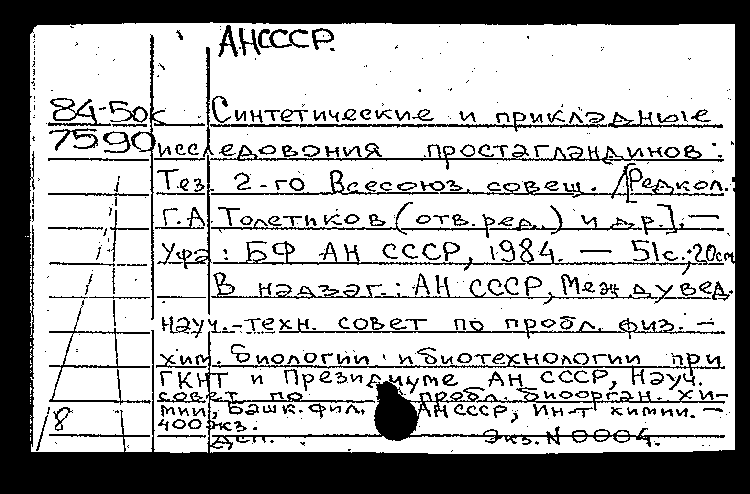 АНСССР.
84-50к Синтетические и прикладные
7590 исследования простагландинов:
Тез. 2-го Всесоюз. совещ. /[Редкол.:
Г.А. Толстиков (отв.ред.) и др.]. —
Уфа: БФ АН СССР, 1984. — 51с.; 20см
В надзаг.: АН СССР, Междувед.
науч.-техн. совет по пробл. физ. -
хим. биологии и биотехнологии при
ГКНТ и Президиуме АН СССР, Науч.
совет по пробл. биоорган. хи-
мии, Башк. фил. АН СССР, Ин-т химии. —
8 400экз.
Деп. Экз. N 0004.